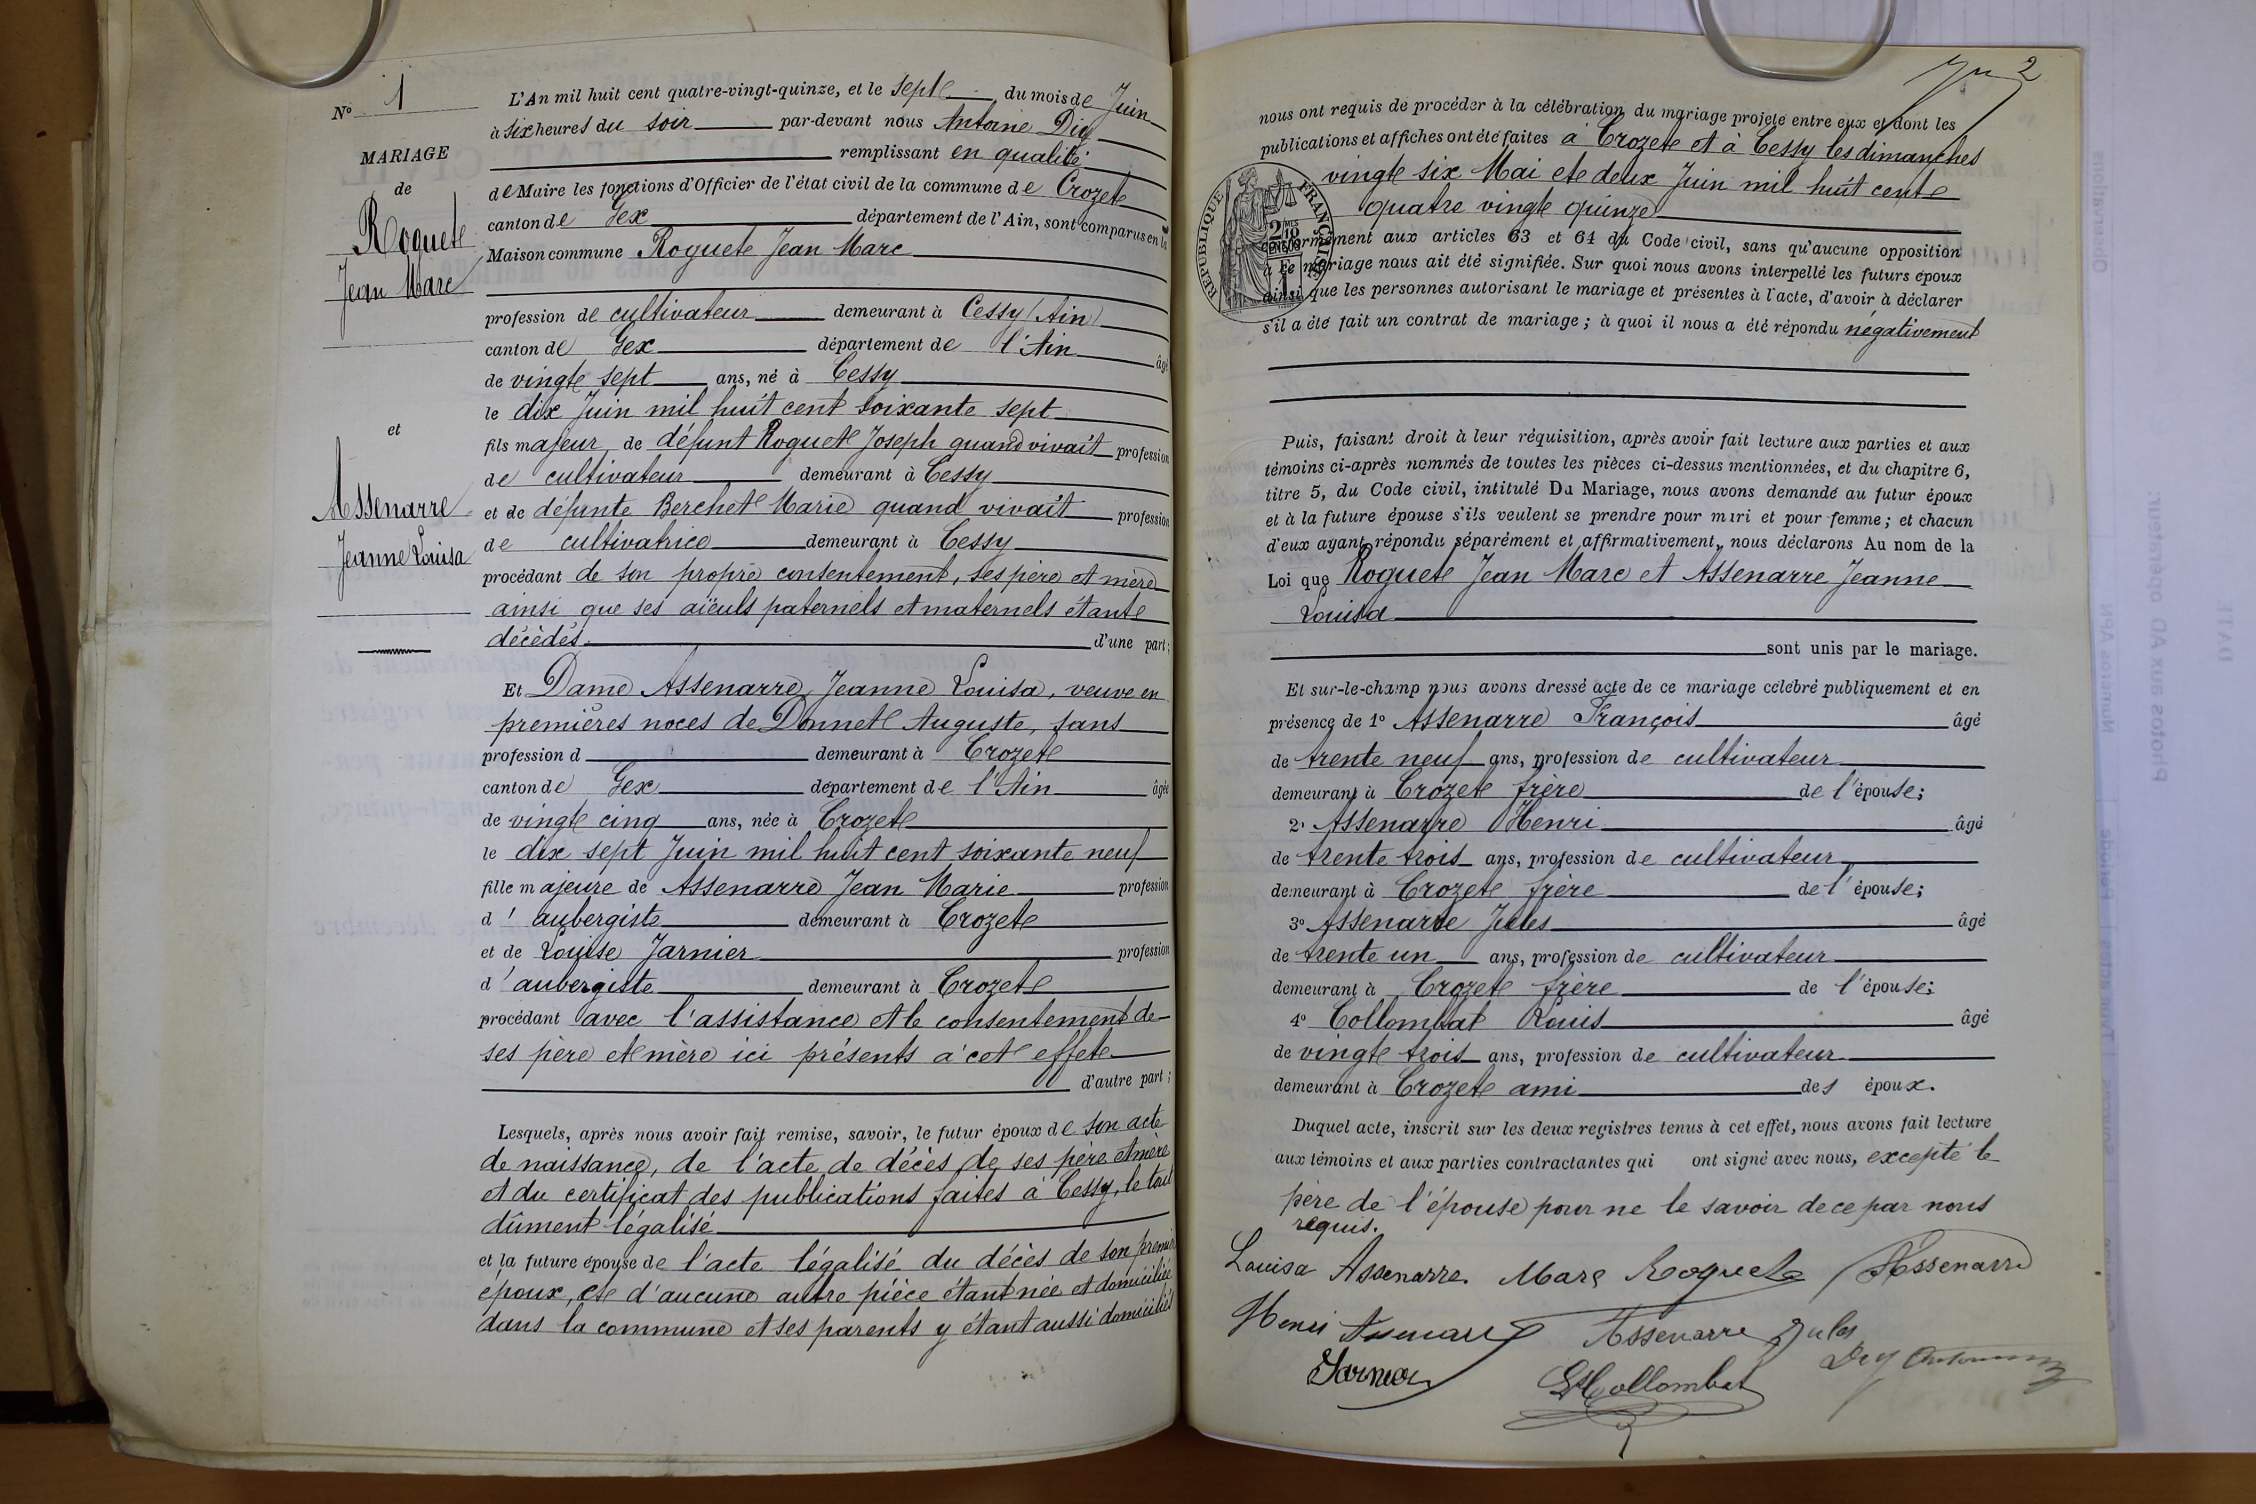 N° 1
MARIAGE
de
Roquet
Jean Marc
et
Assenarre
Jeanne Louisa
L'An mil huit cent quatre-vingt-quinze, et le sept du mois de Juin
à six heures du soir par-devant nous Antoine Dry
remplissant en qualité
de Maire les fonctions d'Officier de l'état civil de la commune de Crozet
canton de Gex département de l'Ain, sont comparus en la
Maison commune Roquet Jean Marc
profession de cultivateur demeurant à Cessy (Ain)
canton de Gex département de l'Ain âgé
de vingt sept ans, né à Cessy
le dix Juin mil huit cent soixante sept
fils majeur de défunt Roquet Joseph quand vivait profession
de cultivateur demeurant à Cessy
et de défunte Berchet Marie quand vivait profession
de cultivatrice demeurant à Cessy
procédant de son propre consentement, ses père et mère
ainsi que ses aïeuls paternels et maternels étant
décèdés d'une part;
Et Dame Assenarre Jeanne Louisa, veuve en
premières noces de Donnet Auguste, sans
profession d demeurant à Crozet
canton de Gex département de l'Ain âgée
de vingt cinq ans, née à Crozet
le dix sept Juin mil huit cent soixante neuf
fille majeure de Assenarre Jean Marie profession
d'aubergiste demeurant à Crozet
et de Louise Jarnier profession
d'aubergiste demeurant à Crozet
procédant avec l'assistance et le consentement de
ses père et mère ici présents à cet effet
d'autre part;
Lesquels, après nous avoir fait remise, savoir, le futur époux de son acte
de naissance, de l'acte de décès de ses père et mère
et du certificat des publications faites à Cessy, le tout
dûment légalisé
et la future épouse de l'acte légalisé du décès de son premier
époux, et d'aucune autre pièce étant née et domiciliée
dans la commune et ses parents y étant aussi domiciliés
2
nous ont requis de procéder à la célébration du mariage projeté entre eux et dont les
publications et affiches ont été faites à Crozet et à Cessy les dimanches
vingt six Mai et deux Juin mil huit cent
quatre vingt quinze
RÉPUBLIQUE FRANÇAISE
conformément aux articles 63 et 64 du Code civil, sans qu'aucune opposition
à ce mariage nous ait été signifiée. Sur quoi nous avons interpellé les futurs époux
ainsi que les personnes autorisant le mariage et présentes à l'acte, d'avoir à déclarer
s'il a été fait un contrat de mariage; à quoi il nous a été répondu négativement
Puis, faisant droit à leur réquisition, après avoir fait lecture aux parties et aux
témoins ci-après nommés de toutes les pièces ci-dessus mentionnées, et du chapitre 6,
titre 5, du Code civil, intitulé Du Mariage, nous avons demandé au futur époux
et à la future épouse s'ils veulent se prendre pour mari et pour femme; et chacun
d'eux ayant répondu séparément et affirmativement, nous déclarons Au nom de la
Loi que Roquet Jean Marc et Assenarre Jeanne
Louisa
sont unis par le mariage.
Et sur-le-champ nous avons dressé acte de ce mariage célébré publiquement et en
présence de 1° Assenarre François âgé
de trente neuf ans, profession de cultivateur
demeurant à Crozet frère de l'épouse;
2° Assenarre Henri âgé
de trente trois ans, profession de cultivateur
demeurant à Crozet frère de l'épouse;
3° Assenarre Jules âgé
de trente un ans, profession de cultivateur
demeurant à Crozet frère de l'épouse;
4° Collombat Louis âgé
de vingt trois ans, profession de cultivateur
demeurant à Crozet ami des époux.
Duquel acte, inscrit sur les deux registres tenus à cet effet, nous avons fait lecture
aux témoins et aux parties contractantes qui ont signé avec nous, excepté le
père de l'épouse pour ne le savoir de ce par nous
requis.
Louisa Assenarre. Marc Roquet Assenarre
Henri Assenarre Assenarre Jules
Jarnier Collombat Dry Antoine